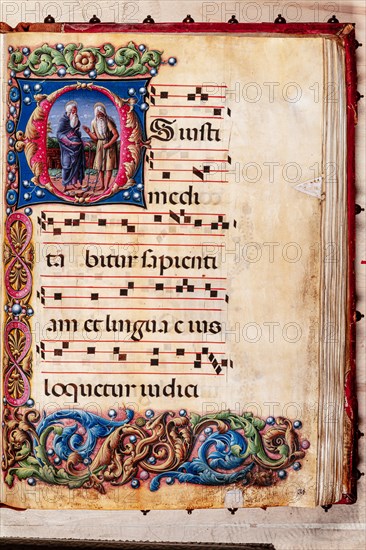 OS iusti
medi
ta bitur sapienti
am et lingua eius
loquetur iudici